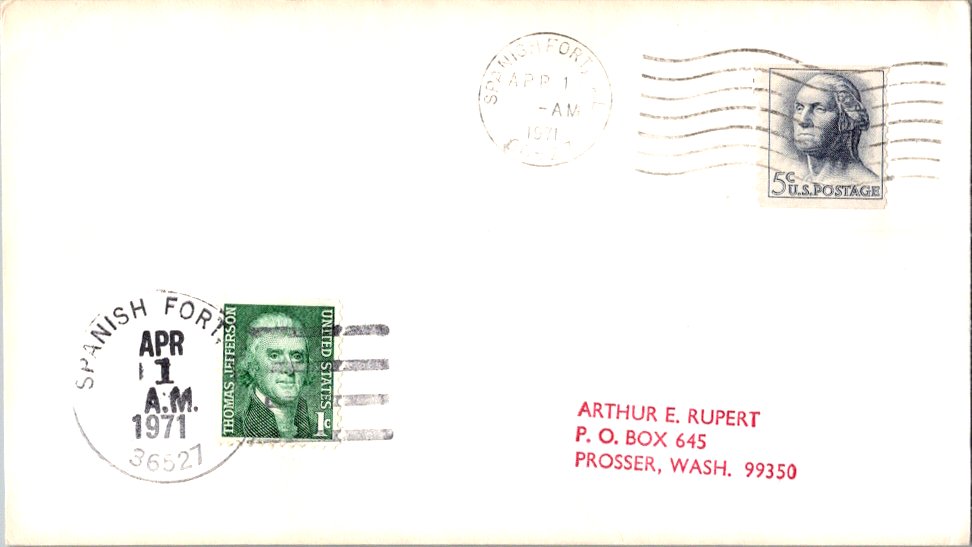 SPANISH FORT,
APR 1
-AM
1971
5c
U.S. POSTAGE
SPANISH FORT,
APR
1
A.M.
1971
36527
THOMAS JEFFERSON
UNITED STATES
1c
ARTHUR E. RUPERT
P. O. BOX 645
PROSSER, WASH. 99350